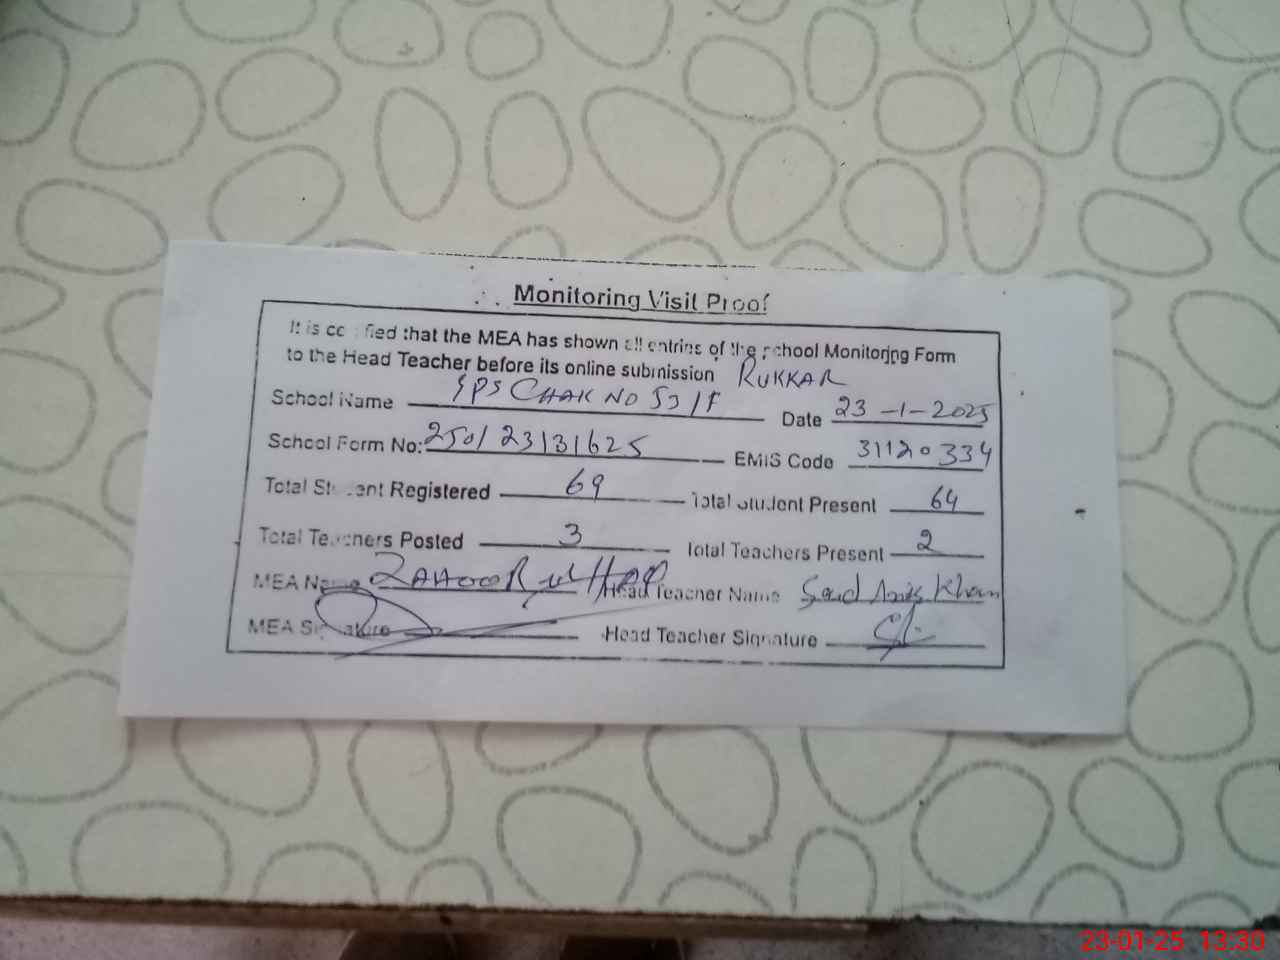 Monitoring Visit Proof
It is certified that the MEA has shown all entries of the school Monitoring Form
to the Head Teacher before its online submission RUKKAR
School Name GPS CHAK NO 53/F Date 23-1-2025
School Form No: 250123131625 EMIS Code 31120334
Total Student Registered 69 Total Student Present 64
Total Teachers Posted 3 Total Teachers Present 2
MEA Name ZAHOOR ul HAQ Head Teacher Name Khan
MEA Signature Head Teacher Signature
23-01-25 13:30